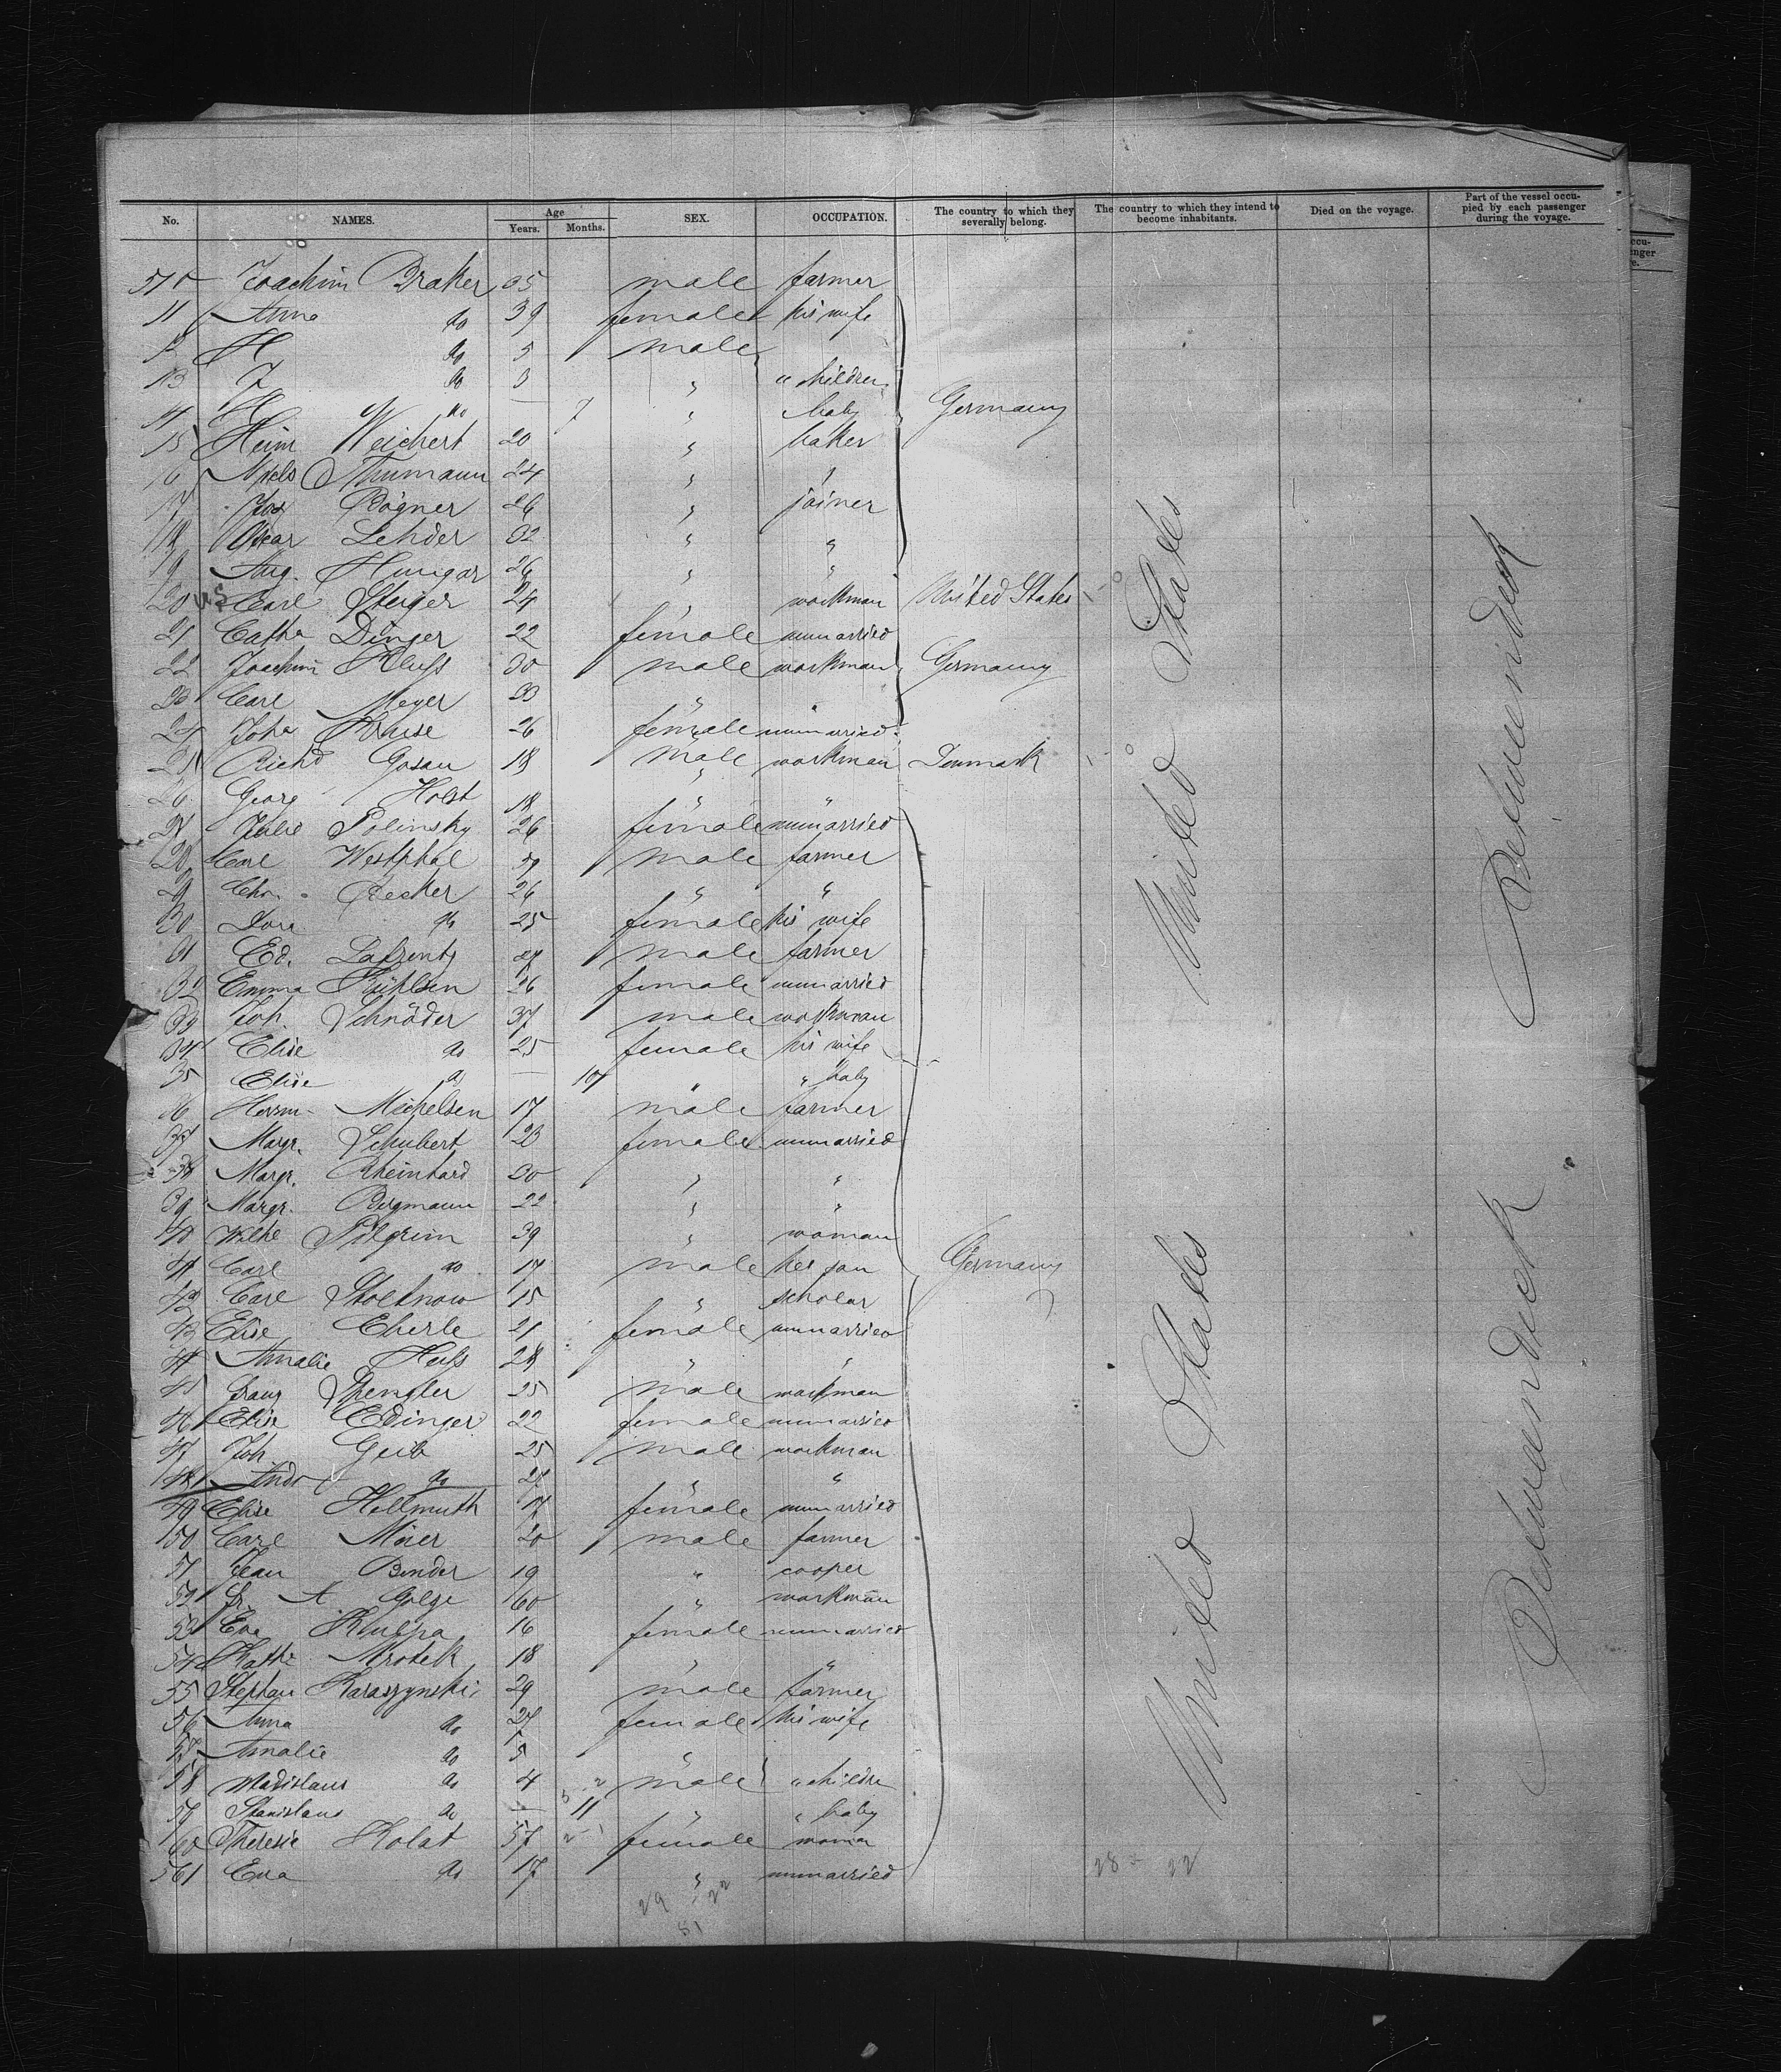 No. NAMES. Age Years. Months. SEX. OCCUPATION. The country to which they severally belong. The country to which they intend to become inhabitants. Died on the voyage. Part of the vessel occupied by each passenger during the voyage.
510 Joachim Braker 35 male farmer
11 Anna do 39 female his wife
12 H do 5 male
13 J do 3 " " children
14 H do — 7 " baby Germany
15 Heinr Weichert 20 " baker
16 Niels Thumann 24 " "
17 Jos Bögner 26 " joiner
18 Oscar Lehder 32 " "
19 Aug. Hungar 26 " "
20 US Carl Steiger 24 " workman United States
21 Cathe Dinger 22 female unmarried
22 Joachim Kluss 30 male workman Germany
23 Carl Meyer 33 " "
24 Joha Kruse 26 female unmarried
25 Richd Gosau 18 male workman Denmark
26 Georg Holst 18 " "
27 Julie Polinsky 26 female unmarried
28 Carl Westphal male farmer
29 Chr. Becker 26 " "
30 Dora do 25 female his wife
31 Ed. Lafrentz 27 male farmer
32 Emma Kühlsen 26 female unmarried
33 Joh. Schnöder 37 male workman
34 Elise do 25 female his wife
35 Elise do — 10 " " baby
36 Herm. Michelsen 17 male farmer
37 Margr. Schubert 23 female unmarried
38 Margr. Rheinhard 20 " "
39 Margr. Bergmann 22 " "
40 Wilhe Pilgrim 39 " woman
41 Carl do 17 male her son Germany
42 Carl Stoltnow 15 " scholar
43 Elise Eberle 21 female unmarried
44 Amalie Huss 28 " "
45 Franz Spengler 25 male workman
46 Elise Edinger 22 female unmarried
47 Joh. Geib 25 male workman
48 Andr do 27 " "
49 Elise Hellmuth 17 female unmarried
50 Carl Maier 20 male farmer
51 Jean Binder 19 " cooper
52 Fr. A Golge 60 " workman
53 Eva Kulpa 16 female unmarried
54 Kathe Mrotek 18 " "
55 Stephan Karaszynski 29 male farmer
56 Anna do 27 female his wife
57 Amalie do 5 "
58 Wladislaus do 4 male " children
59 Stanislaus do — 11 " " baby
60 Therese Kolat 57 female woman
561 Eva do 17 " unmarried
United States
United States
Betweendeck
Betweendeck
28 22
29 22
51